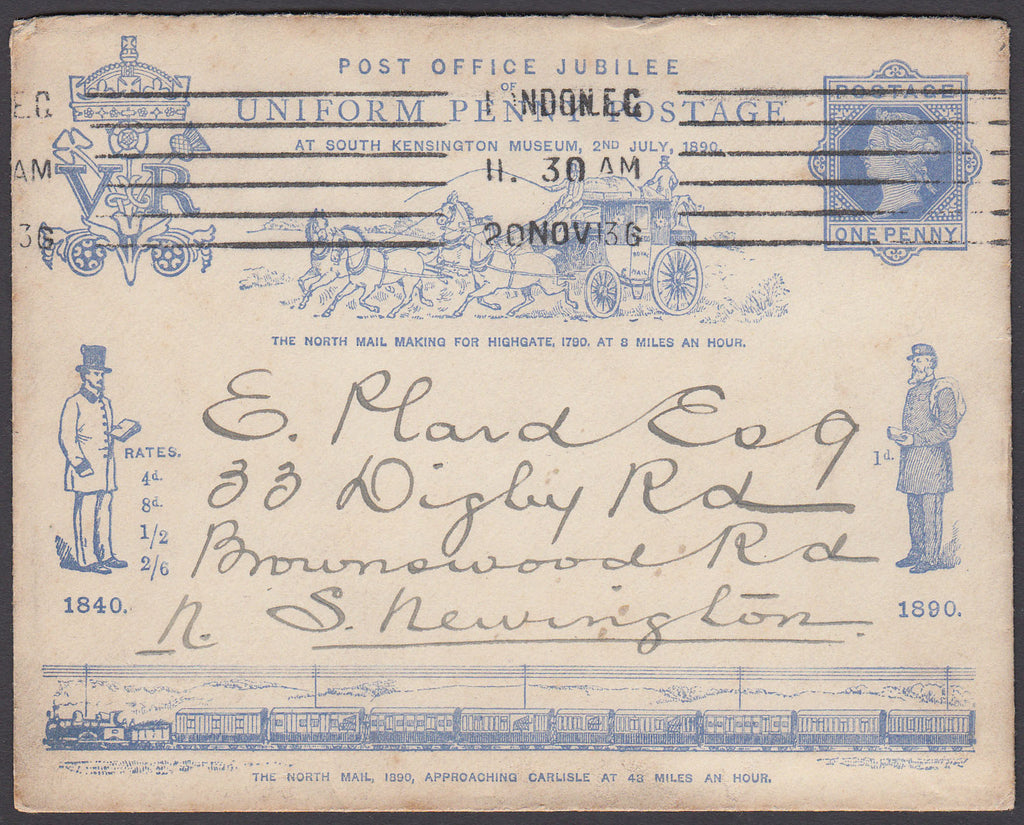 POST OFFICE JUBILEE
OF
UNIFORM PENNY POSTAGE
AT SOUTH KENSINGTON MUSEUM, 2ND JULY, 1890.
V R
POSTAGE
ONE PENNY
E.C
AM
36
LONDON.E.C
11. 30 AM
20 NOV 36
ROYAL
MAIL
THE NORTH MAIL MAKING FOR HIGHGATE, 1790, AT 8 MILES AN HOUR.
E. Plaid Esq
33 Digby Rd
Brownswood Rd
N. S. Newington
RATES.
4d.
8d.
1/2
2/6
1840.
1d.
1890.
THE NORTH MAIL, 1890, APPROACHING CARLISLE AT 48 MILES AN HOUR.